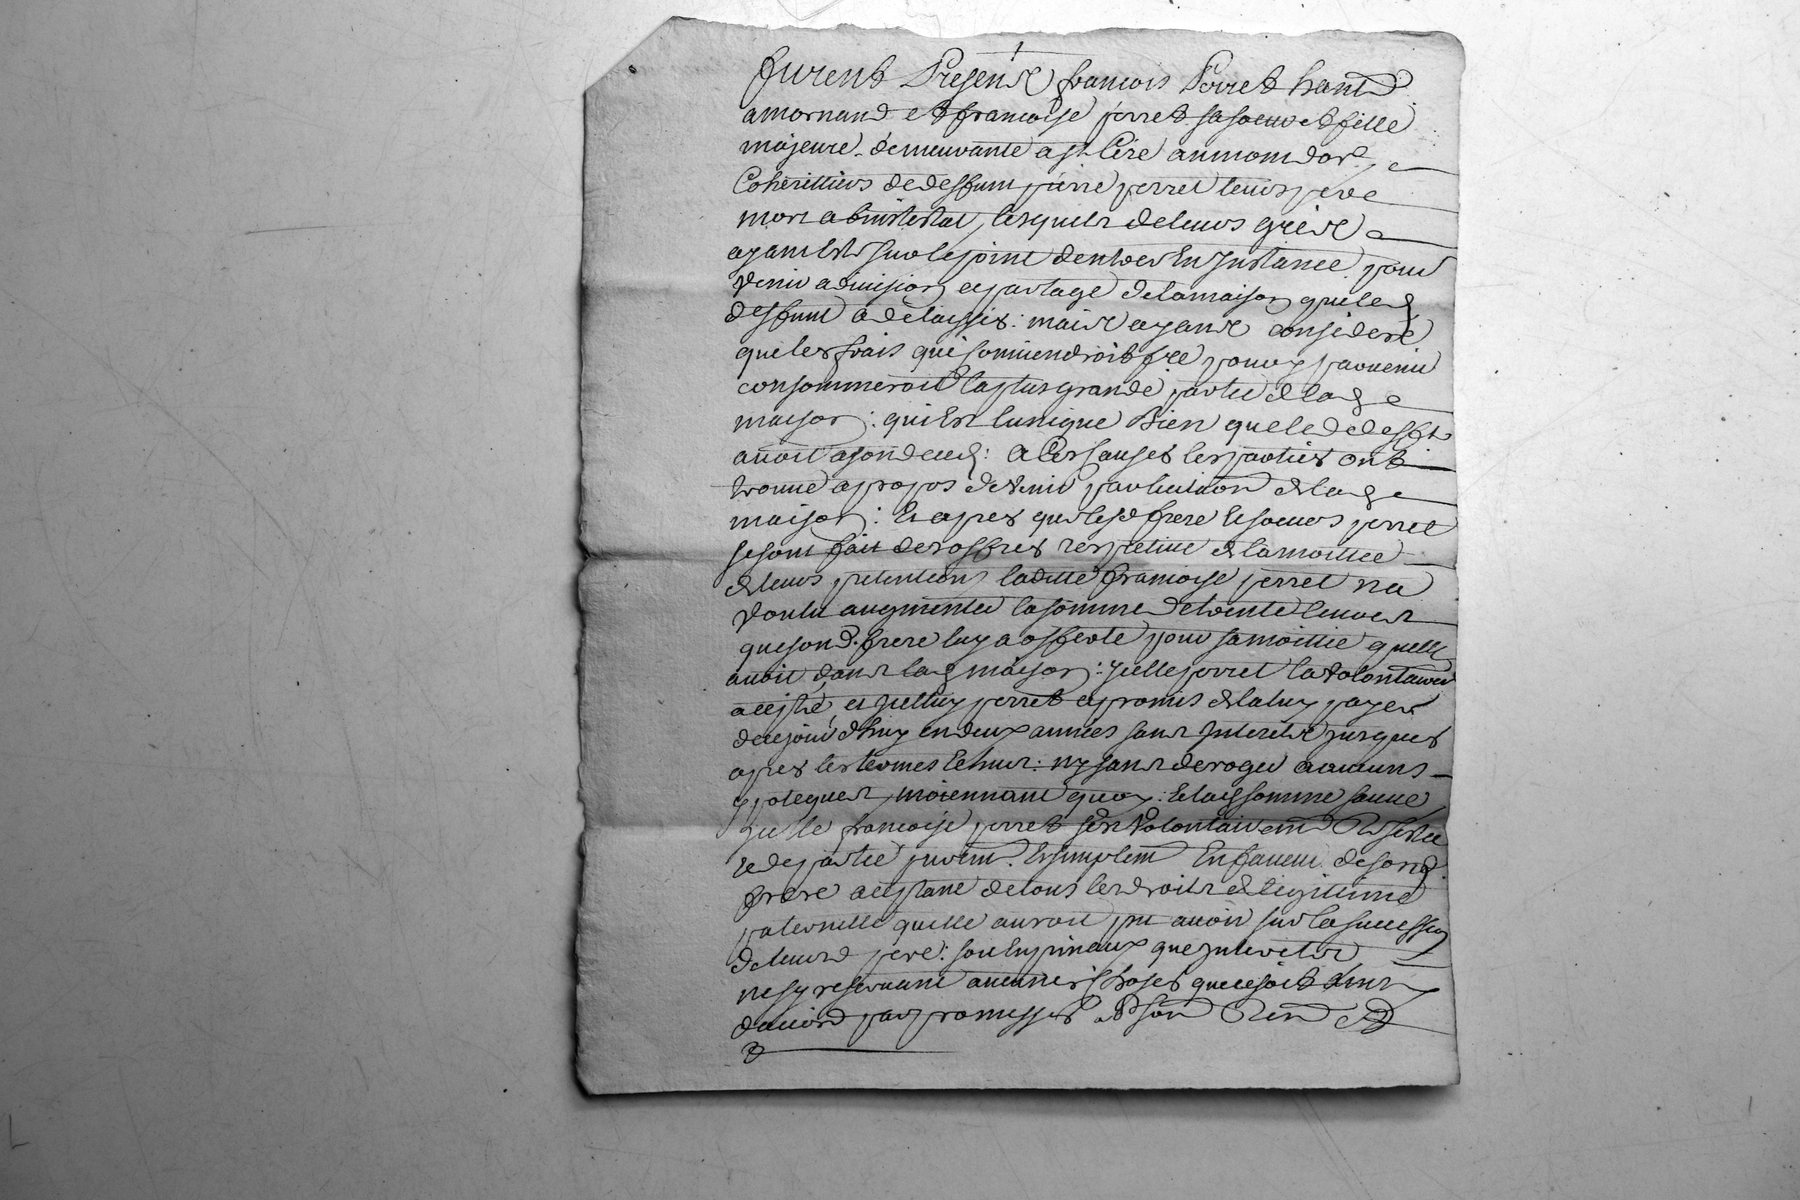 furent Presents françois Perret habit
a mornand et françoise perret sa soeur et fille
majeure demeurante a st Cire au mont d'or
Coherittiers de deffunt pierre perret leurs pere
mort abinstestat, lesquels de leurs gréz
ayant ests sur le point dentrer En Instance pour
venir a division et partage de la maison que led
deffunt a delaissés : mais ayants consideré
que les frais qui conviendroit fre pour y parvenir
consommeroit la plus grande partie de lad
maison : qui Est lunique Bien que le d defft
avoit a son deced : a Ces Causes les parties ont
trouvé a propos de venir par licitation de lad
maison : Et apres que lesd frere Et soeurs perret
se sont fait des offres respetive de la moittiee
de leurs pretentions laditte françoise perret na
voulu augmenter la somme de trente livres
que son d. frere luy a offerte pour sa moittié quelle
avoit dans lad maison : Jcelle perret la volontairem
acepté, et Jcelluy perret a promis de la luy payer
de cejourdhuy en deux années sans Interets jusques
apres les termes Echus : ny sans deroger a aucuns
ypoteques, moiennant quoy : Et lad somme sauve
Jcelle françoise perret sest volontairemt
et departie purem. Et simplemt En faveur de son d.
frere aceptant de tous les droits de legitime
paternelle quelle auroit pu avoir sur la succession
de leurd pere : soit En prinaux que Interets
ne sy reservant aucunes Choses que ce soit
daccord par promesses